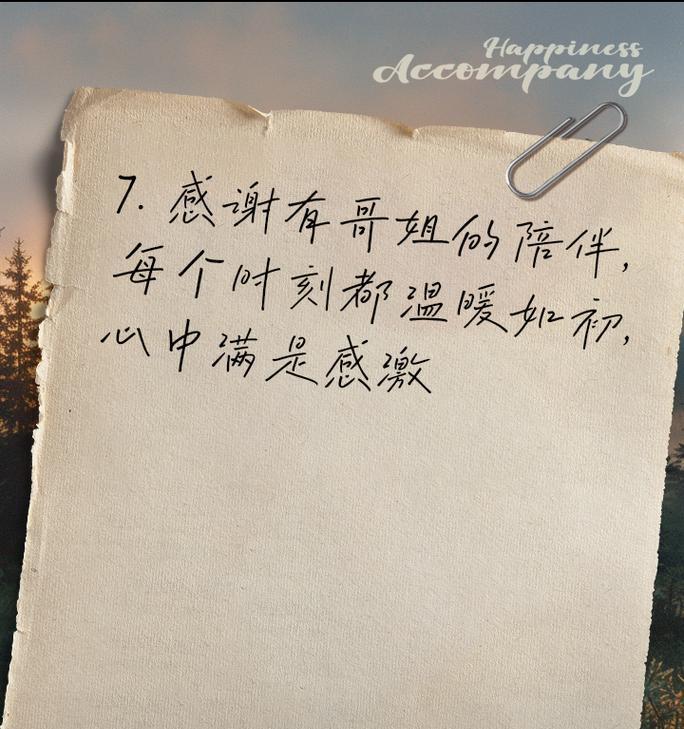 Happiness
Accompany
7. 感谢有哥姐的陪伴,
每个时刻都温暖如初,
心中满是感激